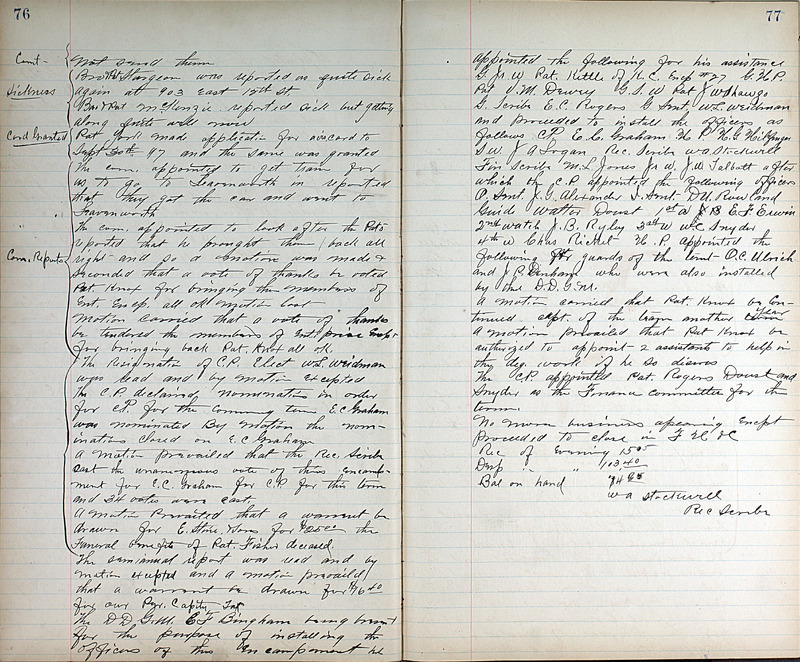 76
Cont-
not need them
Sickness
Bro Sturgeon was reported as quite sick
again at 903 East 15th St
Bro Pat McKenzie reported sick but getting
along quite well now
Card Granted
Pat made application for a card to
Sept 30th 97 and the same was granted
The com. appointed to get train for
us to go to Leavenworth in reported
that they got the car and went to
Leavenworth
The com. appointed to look after the Pats
Com. Reports
reported that he brought them back all
right and so a motion was made &
seconded that a vote of thanks be voted
Pat. Knox for bringing the members of
Ent. Encp. all ok motion lost
Motion carried that a vote of thanks
be tendered the members of Ent. Encpt
for bringing back Pat. Knox all ok.
The resignation of C.P. Elect W.L. Weidman
was read and by motion excepted
The C.P. declared nomination in order
for C.P. for the comming term, E.C. Graham
was nominated By motion the nom-
inations closed on E.C. Graham
A motion prevailed that the Rec. Scribe
cast the unanimous vote of this encamp-
ment for E.C. Graham for C.P. for this term
and 24 votes were cast.
A motion Prevailed that a warrent be
drawn for E. Stine & Son for $25.00 the
Funeral benefits of Pat. Fisher deceased.
The semiannual report was read and by
motion excepted and a motion prevaild
that a warrent be drawn for $16 40
for our Per. Capity Tax
The D.D.G.M. E F Bingham being present
for the purpose of installing the
officers of this encampment he
77
appointed the following for his assistance
G. Jr W Pat. Kittle of K.C. Encp #27 G.H.P.
Pat J.M. Dewry G.S.W Pat J.W. Shawgo
G. Scribe E.C. Rogers G Sent. W.L. Weidman
and proceeded to install the officers as
follows C.P. E.C. Graham H P
S W. J A Logan Rec. Scribe W.A. Stockwell
Fin Scribe M.L. Jones Jr W. J.W. Talbott after
which the C.P. appointed the following officers
O. Sent. J.G. Alexander I. Sent. D.U. Rowland
Guide Walter Doust 1st W J B E.F. Erwin
2nd watch J.B. Ryley 3rd W W.C. Snyder
4th W Chas Ricket H.P. appointed the
following guards of the tent- O.C. Ulrich
and J.P. Denham who were also installed
by the D.D.G.M.
A motion carried that Pat. Knox be con-
tinued capt. of the team another year
A motion prevailed that Pat Knox be
authorized to appoint 2 assistants to help in
the deg. work if he so desires
The C.P. appointed Pat. Rogers Doust and
Snyder as the Finance committee for the
term.
No more business apearing Encpt
proceeded to close in F H & C
Rec of Evening 15 05
Desp " " 103.40
Bal on hand
W A Stockwell
Rec Scribe